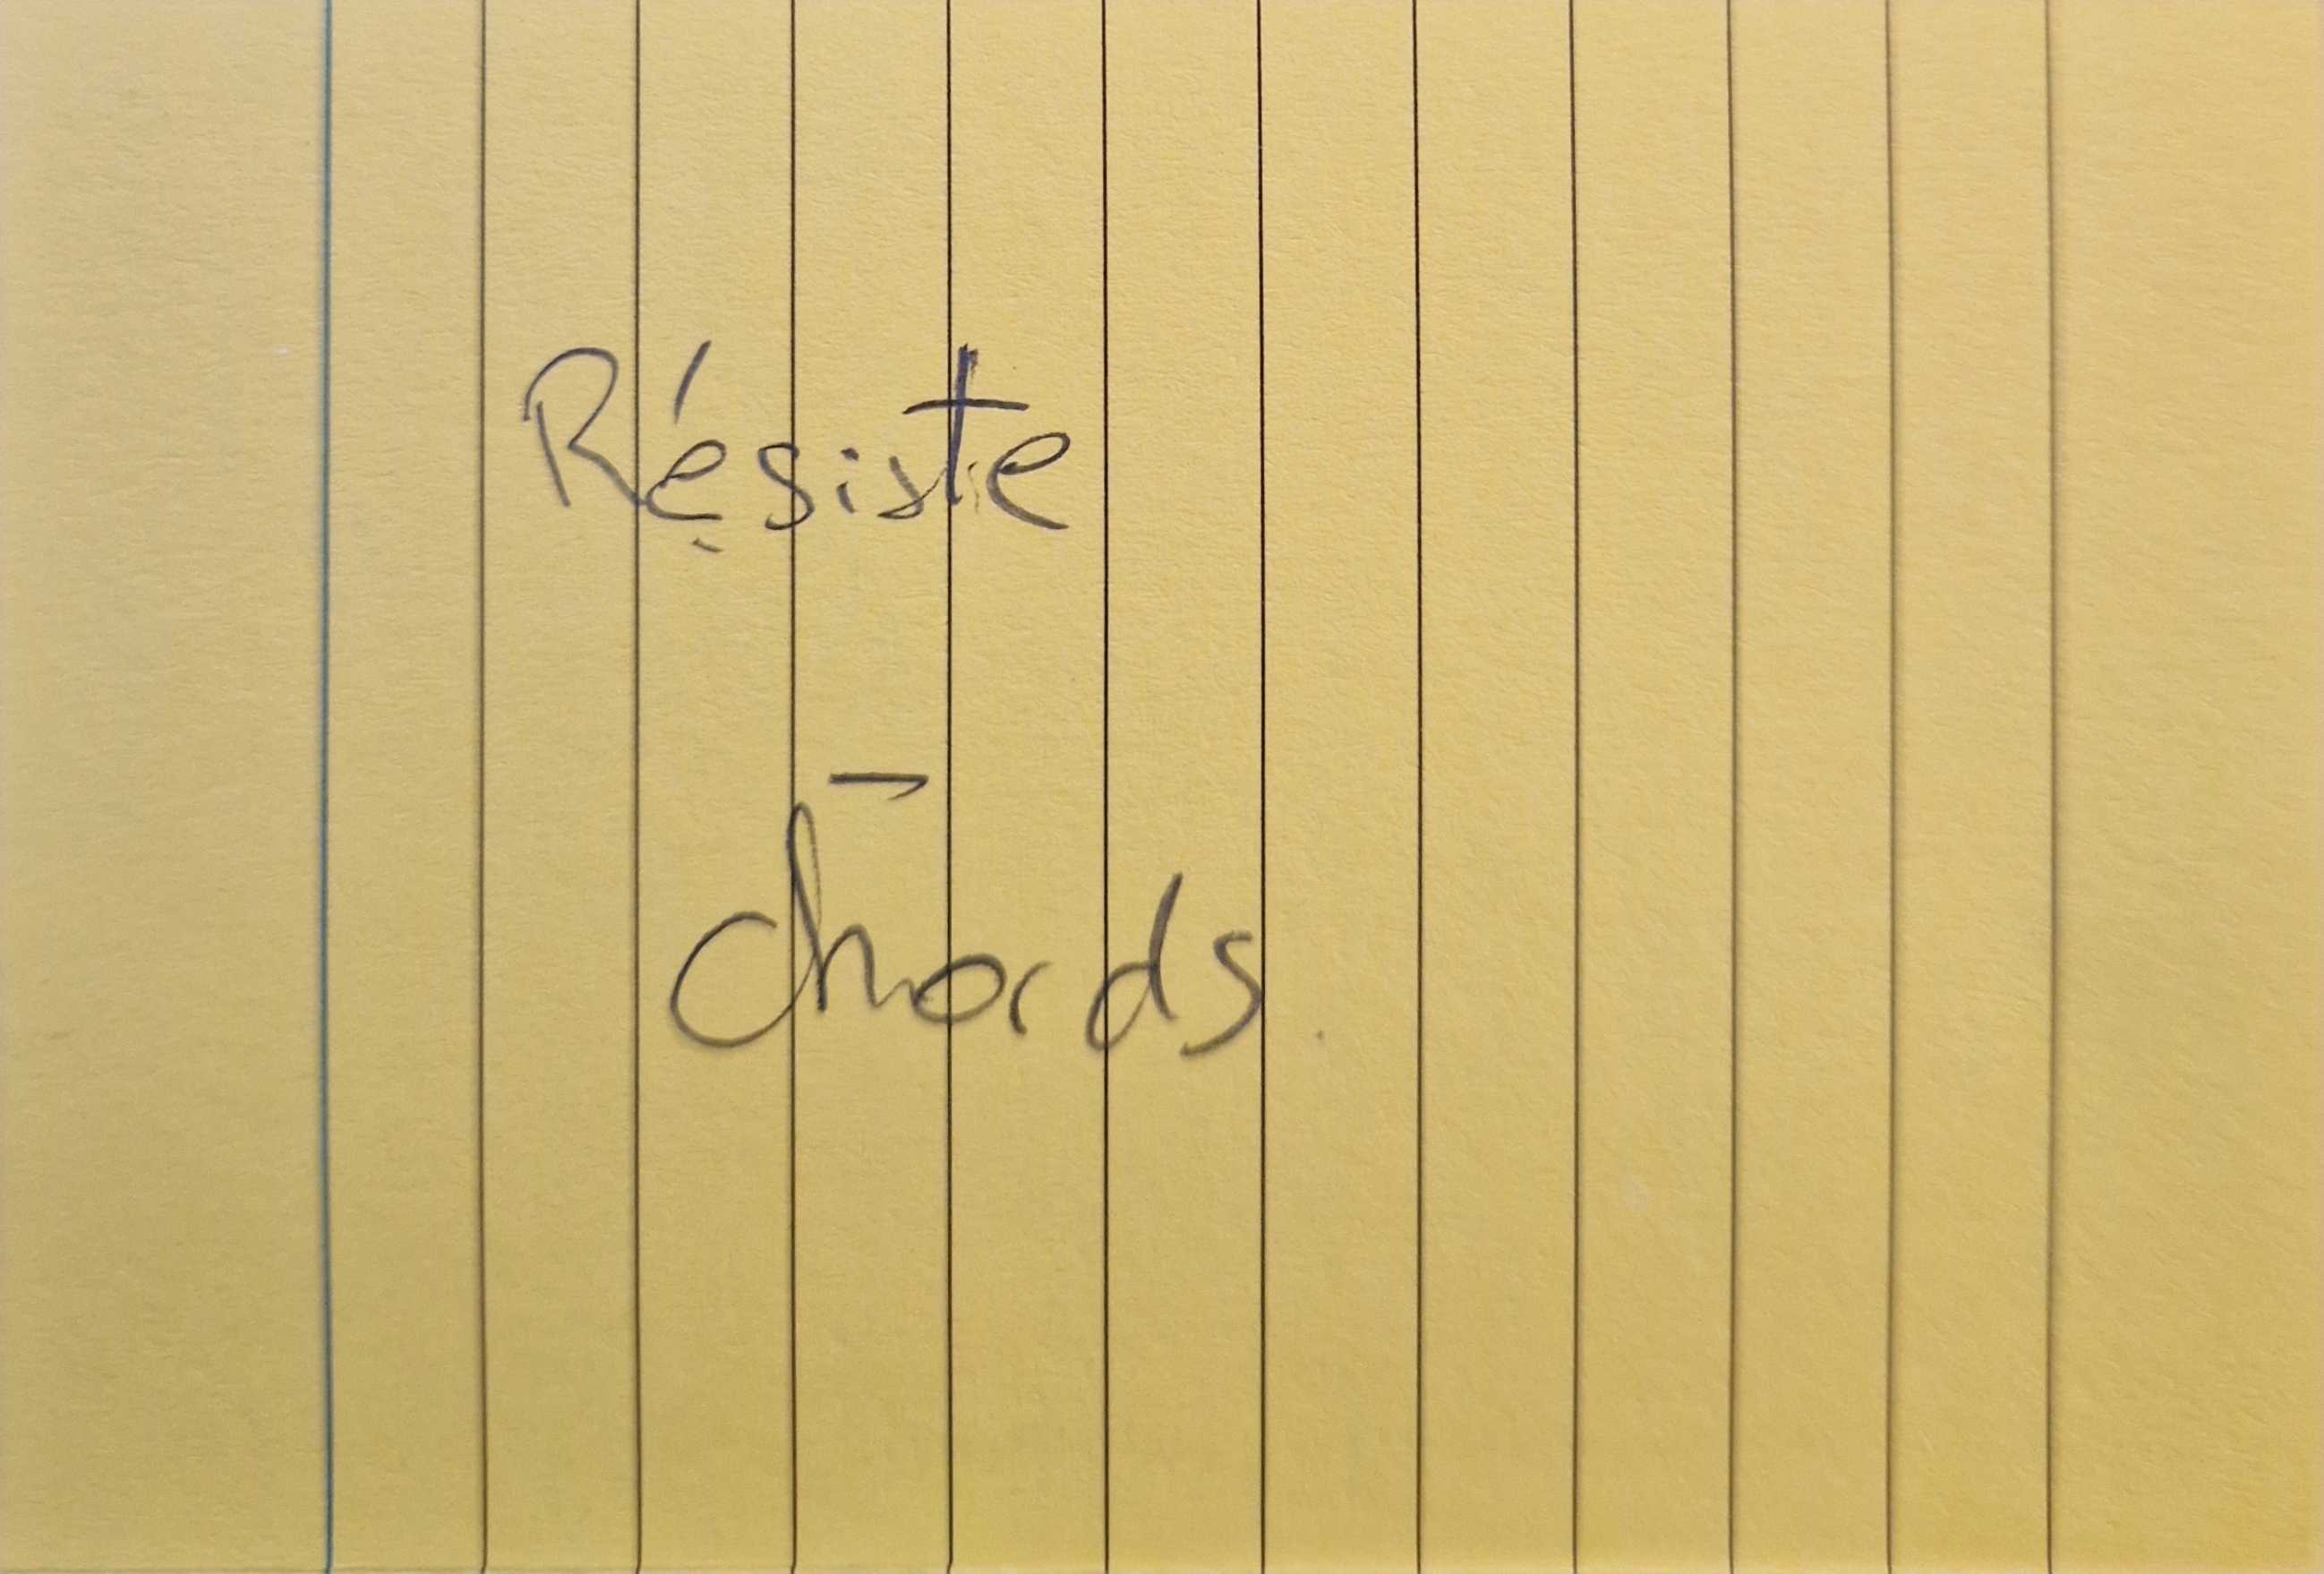 Résiste
-
Chords